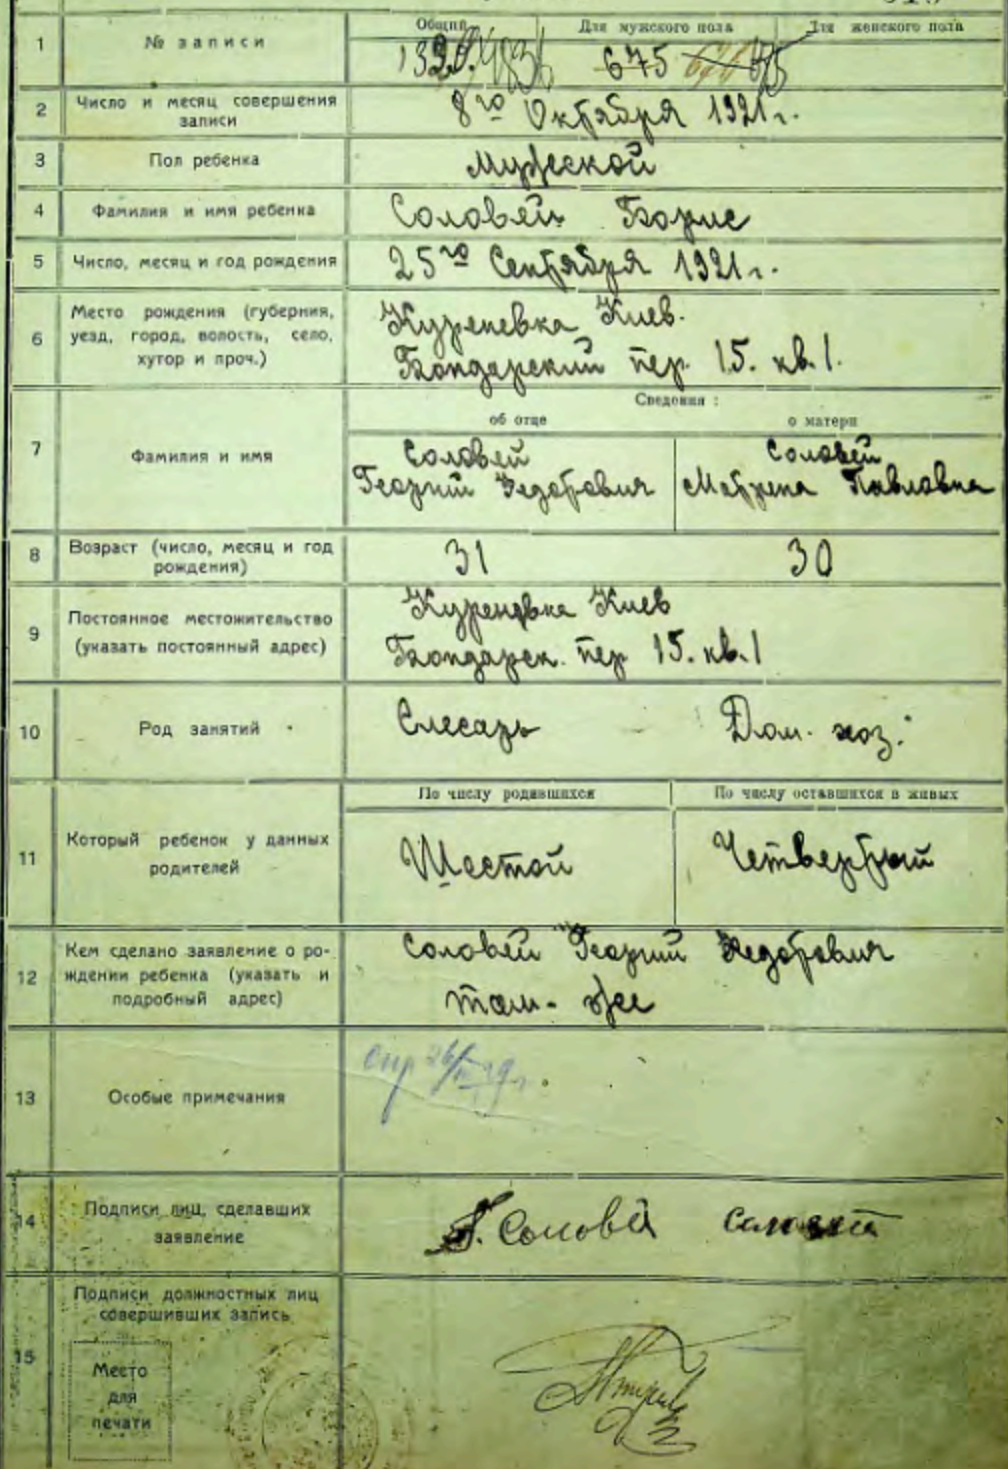 1 № записи
Общий Для мужского пола Для женского пола
675
2 Число и месяц совершения
записи
8го Октября 1921 г.
3 Пол ребенка Мужской
4 Фамилия и имя ребенка Соловей Борис
5 Число, месяц и год рождения 25го Сентября 1921 г.
6 Место рождения (губерния,
уезд, город, волость, село,
хутор и проч.)
Куреневка Киев.
Бондарский пер. 15. кв. 1.
Сведения :
об отце о матери
7 Фамилия и имя
Соловей
Георгий Федорович
Соловей
Матрена Павловна
8 Возраст (число, месяц и год
рождения)
31 30
9 Постоянное местожительство
(указать постоянный адрес)
Куреневка Киев
Бондарск. пер 15. кв. 1
10 Род занятий Слесарь Дом. хоз.
По числу родившихся По числу оставшихся в живых
11 Который ребенок у данных
родителей
Шестой Четвертый
12 Кем сделано заявление о ро-
ждении ребенка (указать и
подробный адрес)
Соловей Георгий Федорович
там-же
13 Особые примечания
14 Подписи лиц, сделавших
заявление
Соловей Соловей
15 Подписи должностных лиц
совершивших запись
Место
для
печати